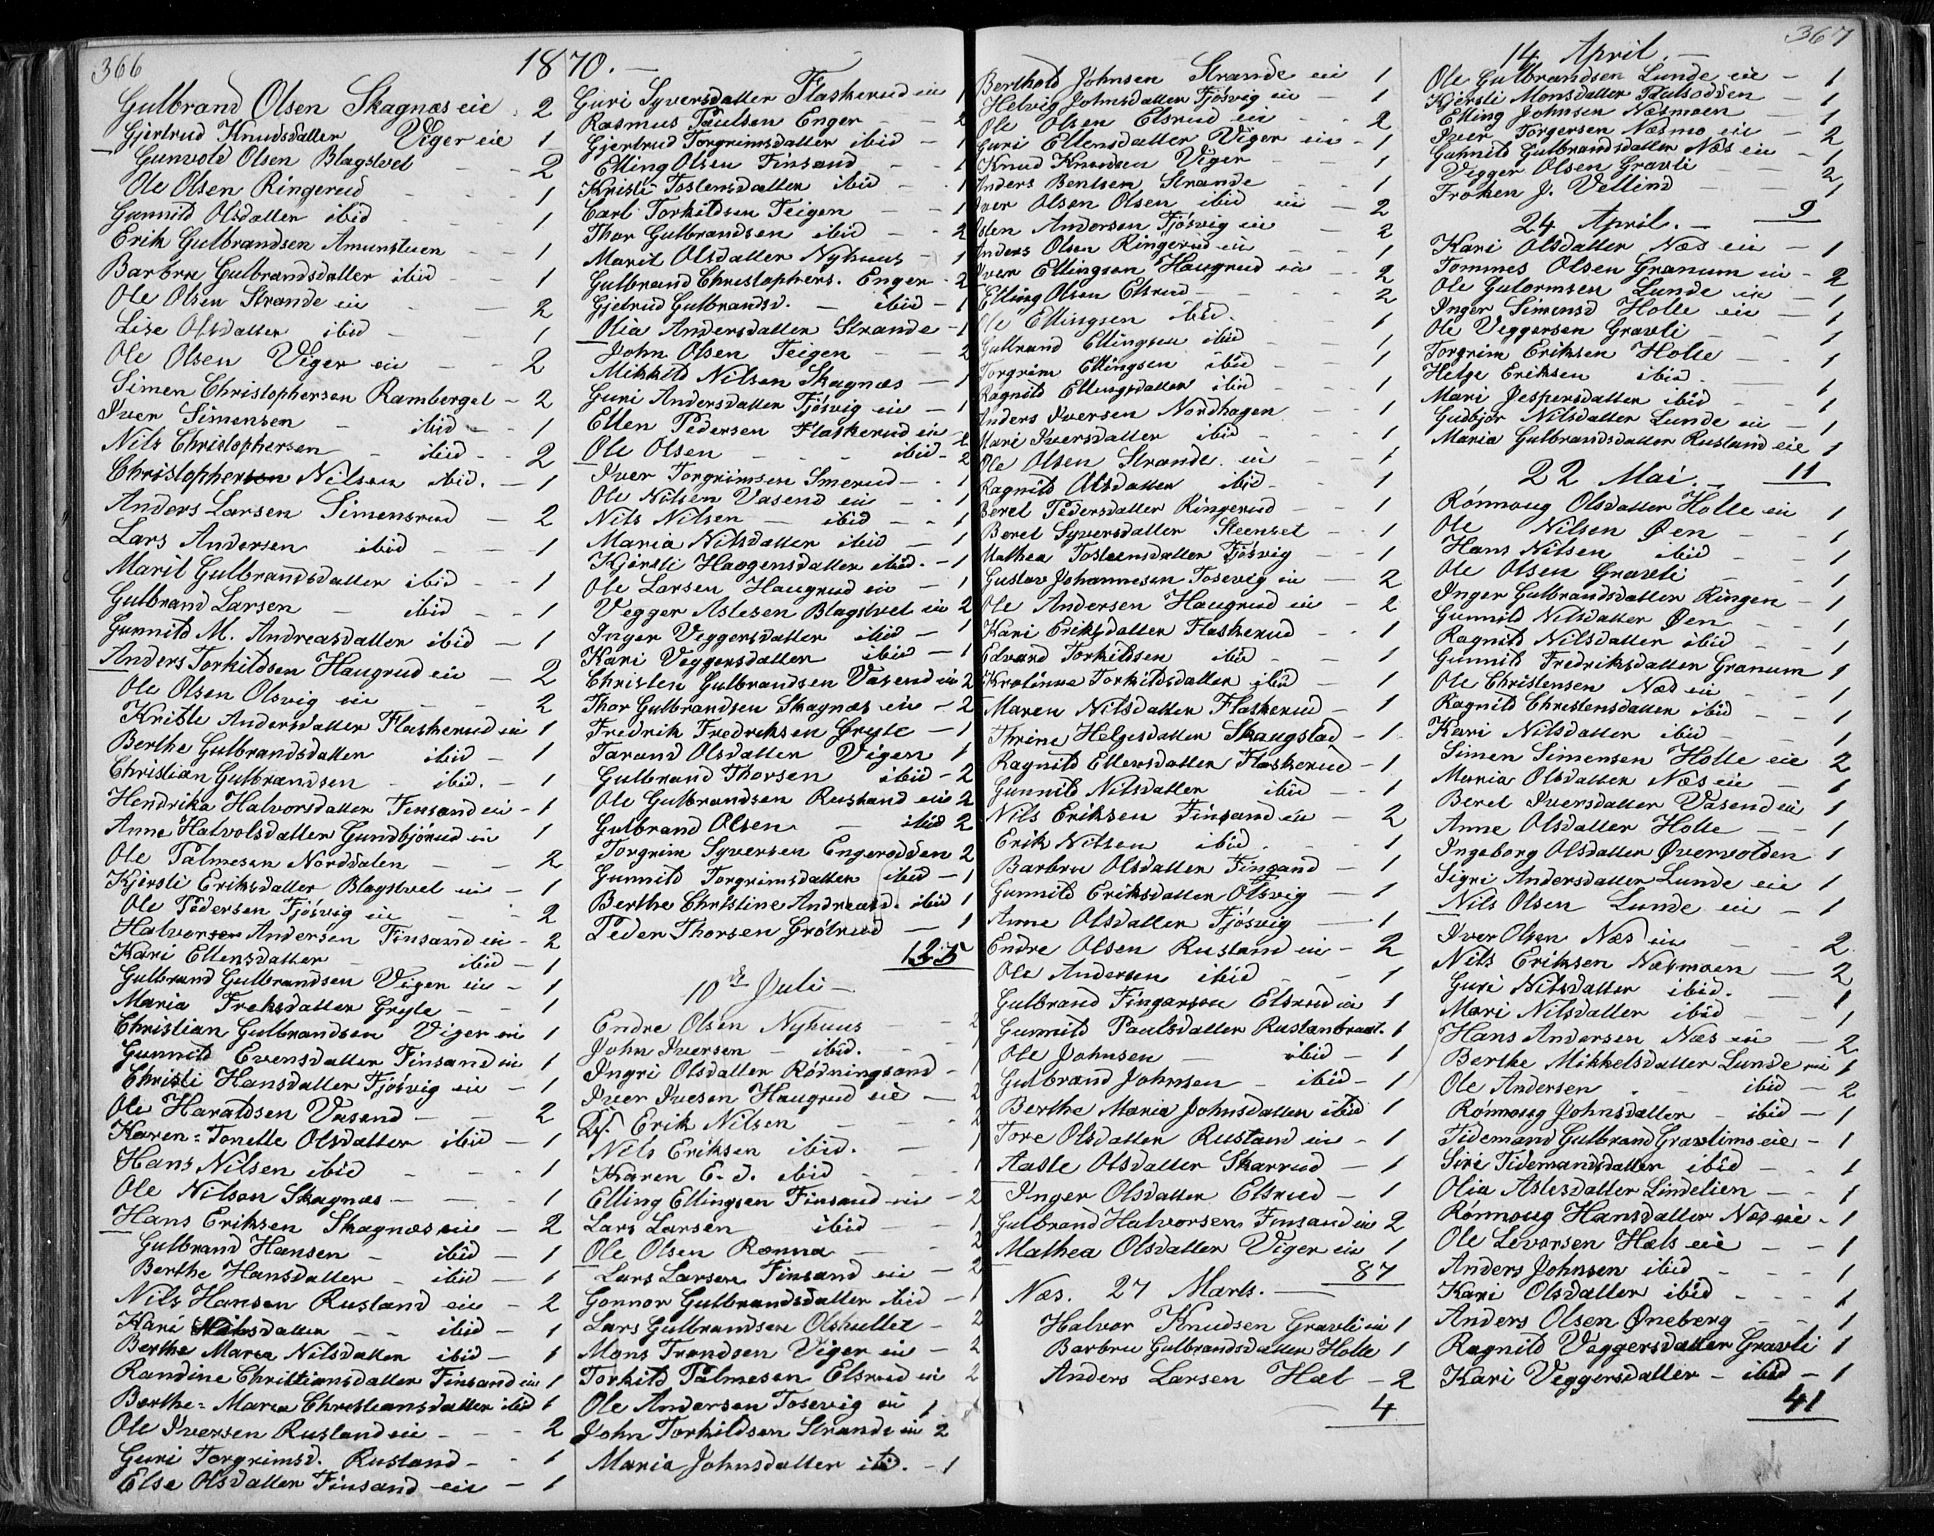 366
1870.
Gulbrand Olsen Skagnæs eie 2
Gjertrud Knudsdatter Viger eie 1
Gunvold Olsen Blagstvet 2
Ole Olsen Ringerud 1
Gunnild Olsdatter ibid 1
Erik Gulbrandsen Amunstuen 1
Barbru Gulbrandsdatter ibid 1
Ole Olsen Strande eie 2
Lise Olsdatter ibid 1
Ole Olsen Viger eie 2
Simen Christophersen Ramberget 2
Iver Simensen ibid 1
Nils Christophersen ibid 2
Christopher Nilsen ibid. 1
Anders Larsen Simensrud 2
Lars Andersen ibid 1
Marit Gulbrandsdatter ibid 1
Gulbrand Larsen ibid 1
Gunnild M. Andreasdatter ibid 1
Anders Torkildsen Haugrud eie 2
Ole Olsen Olsvig eie 2
Kristie Andersdatter Flaskerud ei 1
Berthe Gulbrandsdatter ibid 1
Christian Gulbrandsen ibid. 1
Hendrika Halvorsdatter Finsand ei 1
Anne Halvolsdatter Gundbjörud ei 1
Ole Palmesen Norddalen 2
Kjersti Eriksdatter Blagstvet ei 1
Ole Pedersen Fjösvig ei 2
Halvor Andersen Finsand ei 2
Kari Ellensdatter ibid 1
Gulbrand Gulbrandsen Vigen ei 1
Maria Freksdatter Gryte 1
Christian Gulbrandsen Viger ei 1
Gunnild Evensdatter Finsand ei 1
Christi Hansdatter Fjösvig ei 1
Ole Haraldsen Vasend 2
Karen-Tonette Olsdatter ibid 1
Hans Nilsen ibid 1
Ole Nilsen Skagnæs 1
Hans Eriksen Skagnæs eie 2
Gulbrand Hansen ibid 1
Berthe Hansdatter ibid 1
Nils Hansen Rustand eie 2
Kari Nilsdatter ibid 1
Berthe Maria Nilsdatter ibid 1
Randine Christiansdatter Finsand ei 1
Berthe-Maria Christiansdatter ibid 1
Ole Iversen Rustand ei 2
Guri Torgrimsd. Rustand 1
Else Olsdatter Finsand ei 1
Guri Syversdatter Flaskerud ei 1
Rasmus Paulsen Enger 2
Gjertrud Torgrimsdatter ibid 1
Elling Olsen Finsand 1
Kristi Tostensdatter ibid 1
Carl Torkildsen Teigen 1
Thor Gulbrandsen ibid 2
Marit Olsdatter Nyhuus 1
Gulbrand Christophers. Enger 2
Gjetrud Gulbrandsd. ibid 1
Olia Andersdatter Strande 1
John Olsen Teigen 2
Mikkild Nilsen Skagnæs 1
Guri Andersdatter Fjösvig ei 1
Ellen Pedersen Flaskerud ei
Ole Olsen ibid 2
Iver Torgrimsen Smerud 1
Ole Nilsen Vasend ei 1
Nils Nilsen ibid 1
Maria Nilsdatter ibid 1
Kjersti Haagensdatter ibid. 1
Ole Larsen Haugrud ei 1
Vegger Aslesen Blagstvet ei 2
Inger Veggersdatter ibid 1
Kari Veggersdatter ibid 1
Christen Gulbrandsen Vasend ei 2
Thor Gulbrandsen Skagnæs ei 2
Fredrik Fredriksen Gryte 1
Tarand Olsdatter Vigen 1
Gulbrand Thorsen ibid 2
Ole Gulbrandsen Rustand ei 2
Gulbrand Olsen ibid 2
Torgrim Syversen Engerodden 2
Gunnild Torgrimsdatter ibid 1
Berthe Christine Andreasd. ibid 1
Peder Thorsen Grötrud 1
135
10de Juli
Endre Olsen Nyhuus 2
John Iversen ibid. 1
Ingri Olsdatter Rödningsand 1
Iver Ivesen Haugrud eie 2
Erik Nilsen 2
Nils Eriksen ibid. 1
Karen E. d. ibid 1
Elling Ellingsen Finsand ei 2
Lars Larsen ibid 1
Ole Olsen Rønna 2
Lars Larsen Finsand ei 2
Gonnor Gulbrandsdatter ibid 1
Lars Gulbrandsen Olshullet 2
Mons Trondsen Viger ei 2
Torkild Palmesen Elsrud ei 2
Ole Andersen Tosevig ei 1
John Torkildsen Strande ei 2
Maria Johnsdatter ibid. 1
Berthold Johnsen Strande ei 1
Helvig Johnsdatter Fjösvig ei 1
Ole Olsen Elsrud ei 2
Guri Ellensdatter Viger ei 1
Knud Knudsen Viger 1
Anders Bentsen Strande 1
Iver Olsen Olsen ibid ei 2
Osten Andersen Fjösvig ei 2
Anders Olsen Ringerud ei 1
Iver Ellingsen Haugrud ei 2
Elling Olsen Elsrud 2
Ole Ellingsen ibid. 1
Gulbrand Ellingsen ibid 1
Torgrim Ellingsen ibid 1
Ragnild Ellingsdatter ibid 1
Anders Iversen Nordhagen 1
Mari Iversdatter ibid 1
Ole Olsen Strande ei 1
Ragnild Olsdatter ibid 1
Beret Pedersdatter Ringerud 1
Beret Syversdatter Steenset 1
Mathea Tosteensdatter Fjösvig 1
Gustav Johannesen Tosevig ei 2
Ole Andersen Haugrud ei 2
Kari Eriksdatter Flaskerud 1
Edvard Torkildsen ibid 1
Krotinne Torkildsdatter ibid 1
Maren Nilsdatter Flaskerud 1
Thrine Helgesdatter Skaugstad 1
Ragnild Ellersdatter Flaskerud 1
Gunnild Nilsdatter ibid 1
Nils Eriksen Finsand ei 2
Erik Nilsen ibid. 1
Barbru Olsdatter Finsand 1
Gunnild Eriksdatter Olsvig 1
Anne Olsdatter Fjösvig 1
Endre Olsen Rustand ei 2
Ole Andersen ibid 1
Gulbrand Fingarsen Elsrud ei 1
Gunnild Paulsdatter Rustanbraat. 1
Ole Johnsen ibid 1
Gulbrand Johnsen ibid 1
Berthe Maria Johnsdatter ibid 1
Tore Olsdatter Rustand ei 1
Aaste Olsdatter Skarrud 1
Inger Olsdatter Elsrud 1
Gulbrand Halvorsen Finsand ei 2
Mathea Olsdatter Viger ei 1
87
Næs. 27 Marts.
Halvor Knudsen Gravli ei 1
Barbru Gulbrandsdatter Holte 1
Anders Larsen Hæl 2
4
367
14 April.
Ole Gulbrandsen Lunde eie 1
Kjersti Monsdatter Paulsodden 1
Elling Johnsen Næsmoen 1
Iver Torgersen Næsmo ei 2
Guhnild Gulbrandsdatter Næs ei 1
Vigger Olsen Gravli 2
Frøken J. Vellind 1
9
24 April.
Kari Olsdatter Næs ei 1
Tommes Olsen Granum ei 2
Ole Gutormsen Lunde ei 1
Inger Simensd Holte ei 1
Ole Veggersen Gravli 1
Torgrim Eriksen Holte 1
Helge Eriksen ibid. 1
Mari Jespersdatter ibid 1
Gudbjør Nilsdatter Lunde ei 1
Maria Gulbrandsdatter Rustand eie 1
11
22 Mai.
Rönnoug Olsdatter Holte ei 1
Ole Nilsen Øen 1
Hans Nilsen ibid 1
Ole Olsen Gravli 1
Inger Gulbrandsdatter Ringen 1
Gunnild Nilsdatter Øen 1
Ragnild Nilsdatter ibid 1
Gunnild Fredriksdatter Granum 1
Ole Christensen Næs ei 1
Ragnild Christensdatter ibid 1
Kari Nilsdatter ibid 1
Simen Simensen Holte eie 2
Maria Olsdatter Næs ei 1
Beret Iversdatter Vasend ei 1
Anne Olsdatter Holte 1
Ingeborg Olsdatter Øvervolden 1
Sigri Andersdatter Lunde eie 1
Nils Olsen Lunde ei 1
Iver Olsen Næs ei 2
Nils Eriksen Næsmoen 2
Guri Nilsdatter ibid. 1
Mari Nilsdatter ibid 1
Hans Andersen Næs ei 2
Berthe Mikkelsdatter Lunde ei 1
Ole Andersen ibid 2
Rönnoug Johnsdatter ibid 1
Tidemand Gulbrand Gravlimo eie 1
Siri Tidemandsdatter ibid 1
Olia Aslesdatter Lindelien 1
Rönnoug Hansdatter Næs eie 1
Ole Levorsen Hæls eie 1
Anders Johnsen ibid 1
Kari Olsdatter ibid 1
Anders Olsen Øneberg 1
Ragnild Veggersdatter Gravli 1
Kari Veggersdatter ibid 1
41